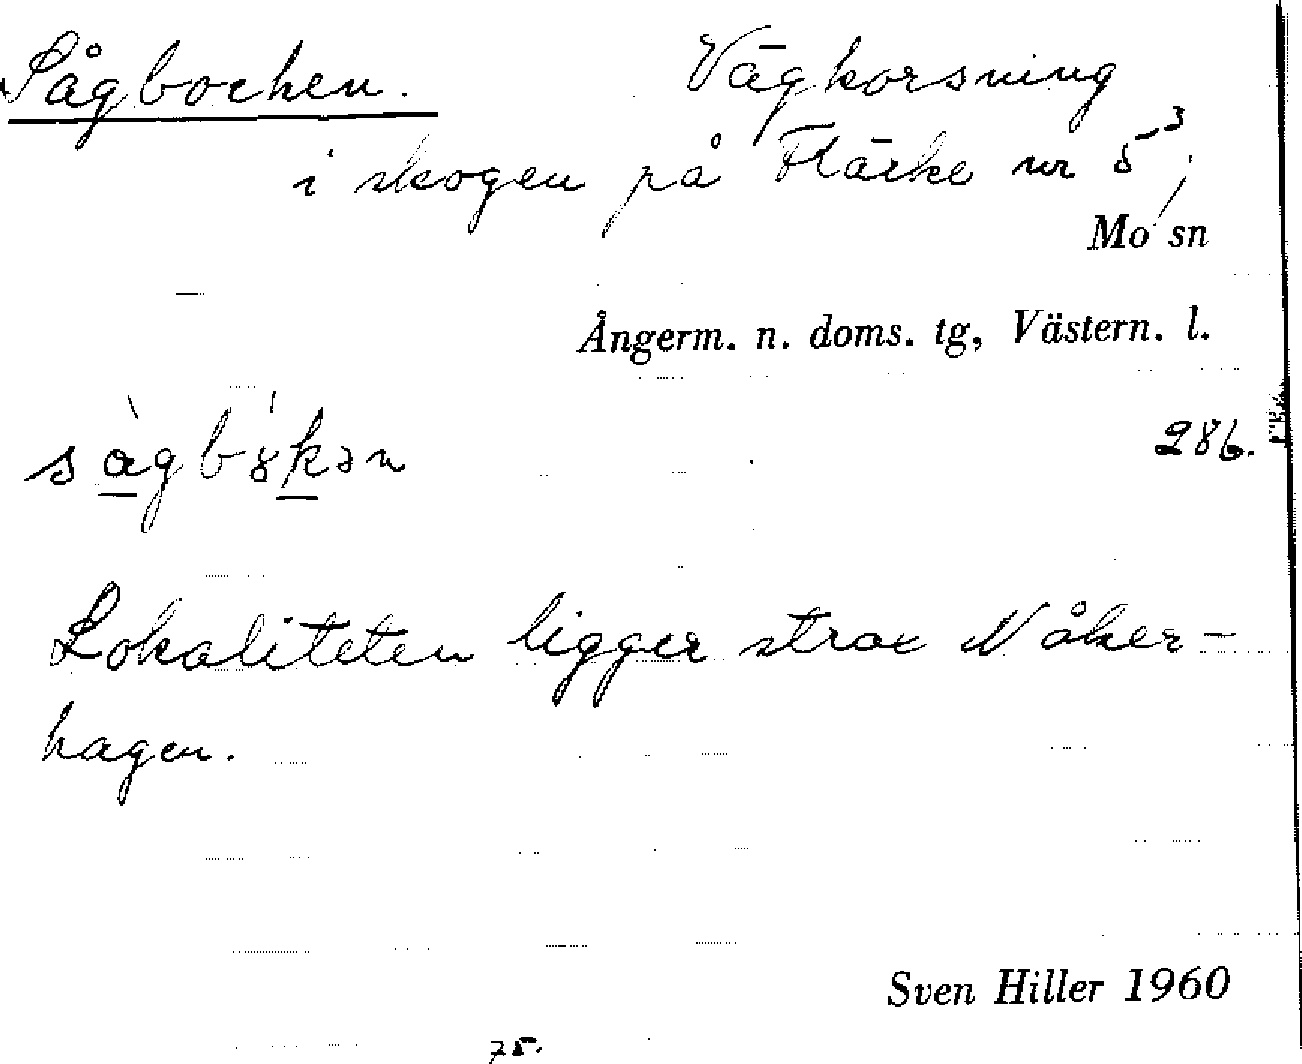 Sågbocken.
Vägkorsning
i skogen på Flärke nr 5³,
Mo sn
Ångerm. n. doms. tg, Västern. l.
286.
Lokaliteten ligger strax N åker-
hagen.
Sven Hiller 1960
75.